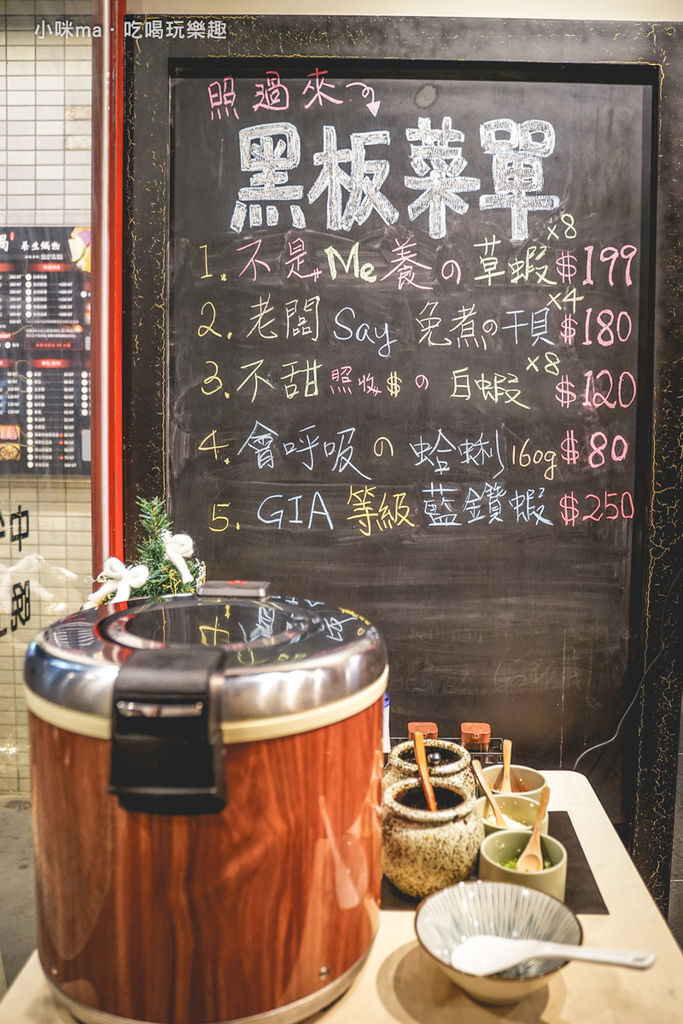 小咪ma·吃喝玩樂趣
照過來
黑板菜單
1. 不是Me養の草蝦x8 $199
2. 老闆Say 免煮の干貝x4 $180
3. 不甜照收$の白蝦x8 $120
4. 會呼吸の蛤蜊160g $80
5. GIA 等級藍鑽蝦 $250
養生鍋物